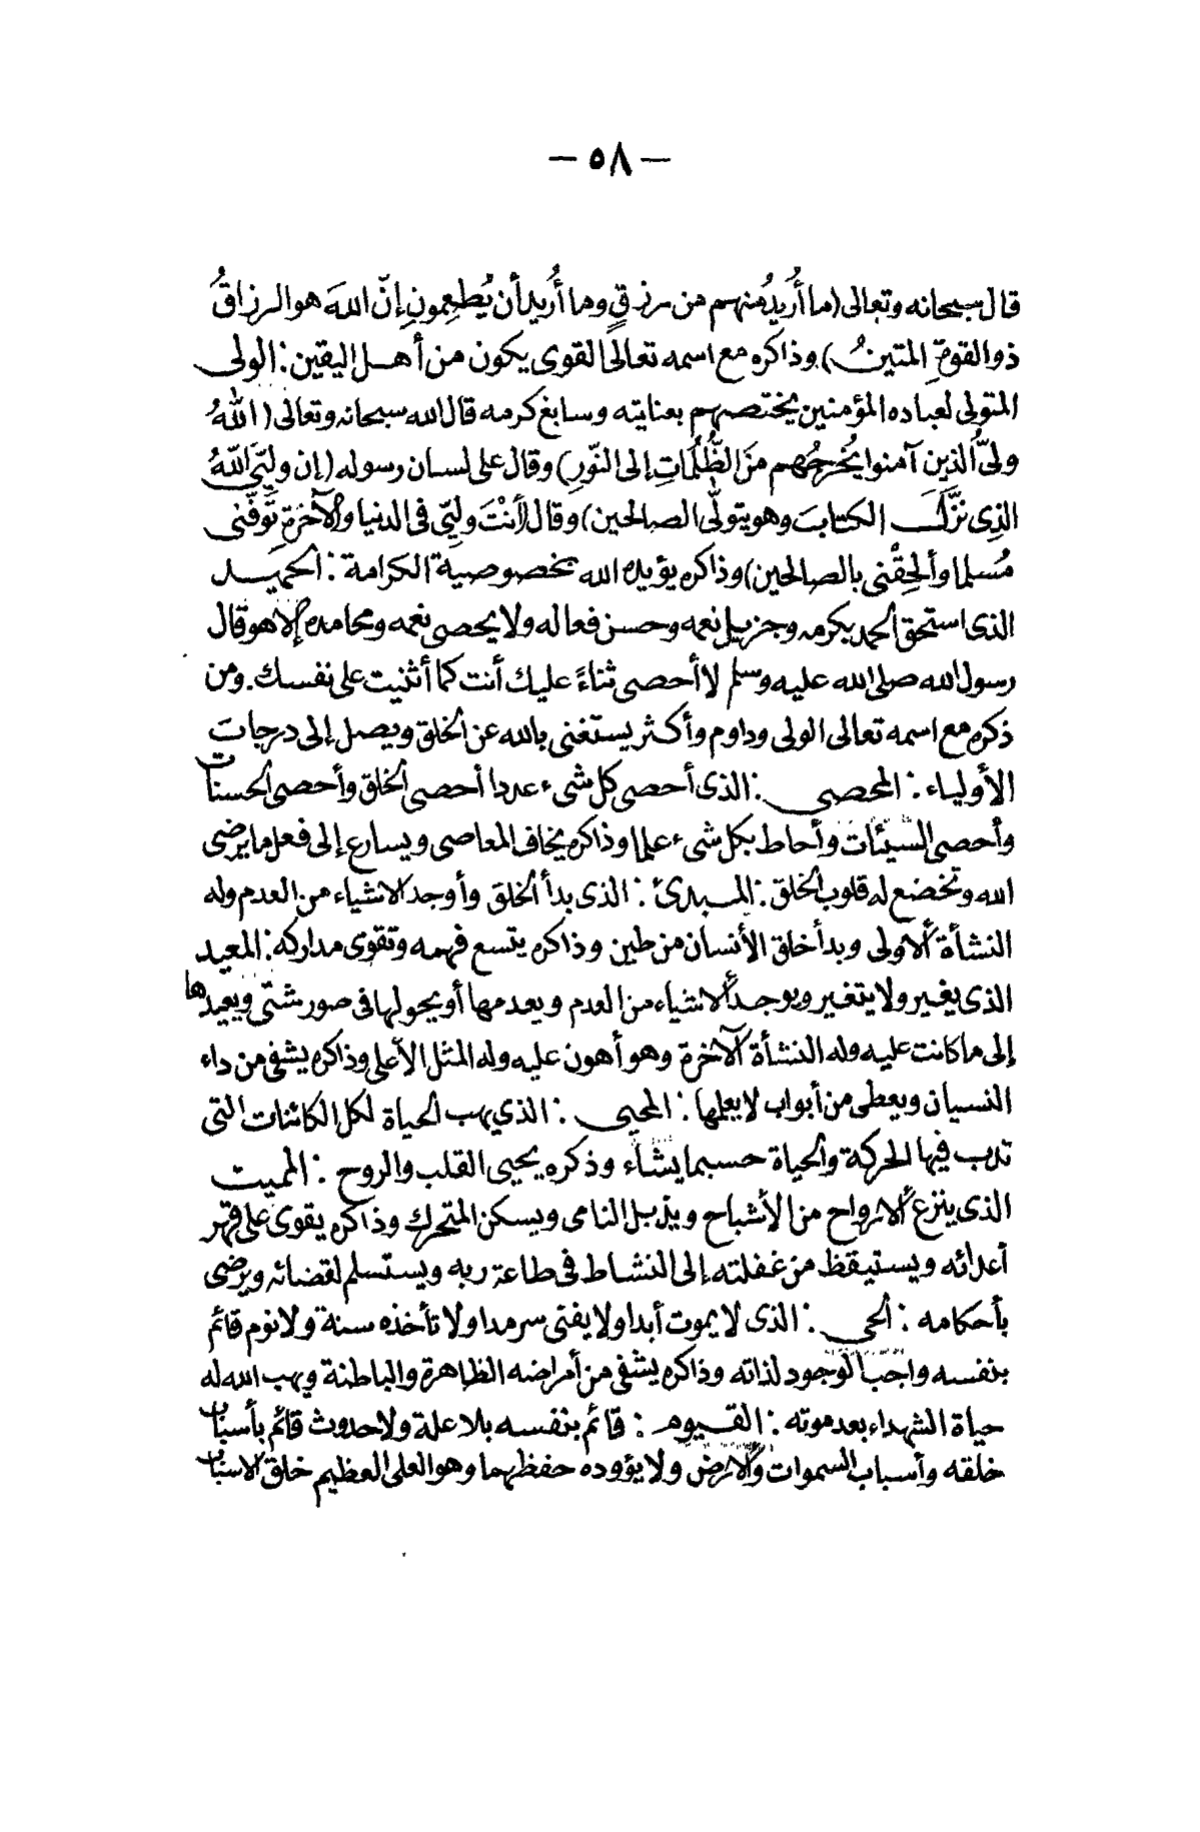 — ٥٨ —
قال سبحانه وتعالى (ما أُريدُ منهم من رزقٍ وما أُريد أن يُطعِمونِ إنّ اللهَ هو الرزاقُ
ذو القوةِ المتينُ) وذاكره مع اسمه تعالى القوى يكون من أهل اليقين: الولى
المتولى لعباده المؤمنين يختصهم بعنايته وسابغ كرمه قال الله سبحانه وتعالى (اللهُ
ولىُّ الذين آمنوا يُخرجُهم منَ الظُّلُمَاتِ إلى النّورِ) وقال على لسان رسوله (إن وليِّىَ اللّهُ
الذِى نزَّلَ الكتابَ وهو يتولَّى الصالحين) وقال (أنْتَ وليِّى فى الدنيا والآخرةِ تَوَفَّنى
مُسلما وألحِقْنى بالصالحين) وذاكره يؤيده الله بخصوصية الكرامة: الحميد
الذى استحق الحمد بكرمه وجزيل نعمه وحسن فعاله ولا يحصى نعمه ومحامده إلا هو قال
رسول الله صلى الله عليه وسلم لا أحصى ثناءً عليك أنت كما أثنيت على نفسك. ومن
ذكره مع اسمه تعالى الولى وداوم وأكثر يستغنى بالله عن الخلق ويصل إلى درجات
الأولياء: المحصى: الذى أحصى كل شىء عددا أحصى الخلق وأحصى الحسنات
وأحصى السيئات وأحاط بكل شىء علما وذاكره يخاف المعاصى ويسارع إلى فعل ما يرضى
الله وتخضع له قلوب الخلق: المبدئ: الذى بدأ الخلق وأوجد الأشياء من العدم وله
النشأة الأولى وبدأ خلق الأنسان من طين وذاكره يتسع فهمه وتقوى مداركه: المعيد
الذى يغير ولا يتغير ويوجد الأشياء من العدم ويعدمها أو يحولها فى صور شتّى ويعيدها
إلى ما كانت عليه وله النشأة الآخرة وهو أهون عليه وله المثل الأعلى وذاكره يشفى من داء
النسيان ويعطى من أبواب لا يعلمها: المحيى: الذي يهب الحياة لكل الكائنات التى
تدب فيها الحركة والحياة حسبما يشاء وذكره يحيى القلب والروح: المميت
الذى ينزع الأرواح من الأشباح ويذبل النامى ويسكن المتحرك وذاكره يقوى على قهر
أعدائه ويستيقظ من غفلته إلى النشاط فى طاعة ربه ويستسلم لقضائه ويرضى
بأحكامه: الحى: الذى لا يموت أبدا ولا يفنى سرمدا ولا تأخذه سنة ولا نوم قائم
بنفسه واجب الوجود لذاته وذاكره يشفى من أمراضه الظاهرة والباطنة ويهب الله له
حياة الشهداء بعد موته: القيوم: قائم بنفسه بلا علة ولا حدوث قائم بأسباب
خلقه وأسباب السموات والأرض ولا يؤوده حفظهما وهو العلى العظيم خلق الأسباب